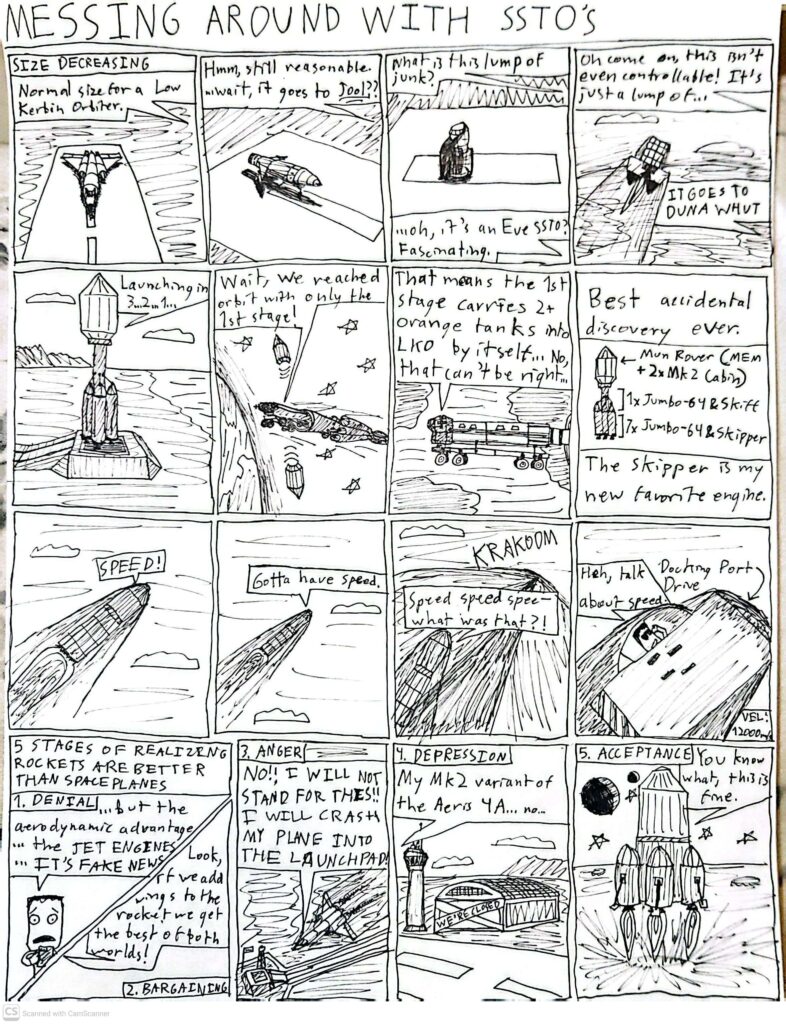 MESSING AROUND WITH SSTO's
SIZE DECREASING
Normal size for a Low
Kerbin Orbiter.
Hmm, still reasonable.
...wait, it goes to Jool??
What is this lump of
junk?
...oh, it's an Eve SSTO?
Fascinating.
Oh come on, this isn't
even controllable! It's
just a lump of...
IT GOES TO
DUNA WHUT
Launching in
3...2...1...
Wait, we reached
orbit with only the
1st stage!
That means the 1st
stage carries 2+
orange tanks into
LKO by itself... No,
that can't be right...
Best accidental
discovery ever.
Mun Rover (MEM
+ 2x Mk2 Cabin)
1x Jumbo-64 & Skiff
7x Jumbo-64 & Skipper
The Skipper is my
new favorite engine.
SPEED!
Gotta have speed.
KRAKOOM
Speed speed spee-
what was that?!
Heh, talk
about speed
Docking Port
Drive
VEL:
12000m/s
5 STAGES OF REALIZING
ROCKETS ARE BETTER
THAN SPACEPLANES
1. DENIAL
...but the
aerodynamic advantage
... the JET ENGINES
... IT'S FAKE NEWS
Look,
if we add
wings to the
rocket we get
the best of both
worlds!
2. BARGAINING
3. ANGER
NO!! I WILL NOT
STAND FOR THIS!!
I WILL CRASH
MY PLANE INTO
THE LAUNCHPAD!
4. DEPRESSION
My Mk2 variant of
the Aeris 4A... no...
WE'RE CLOSED
5. ACCEPTANCE
You know
what, this is
fine.
CS Scanned with CamScanner